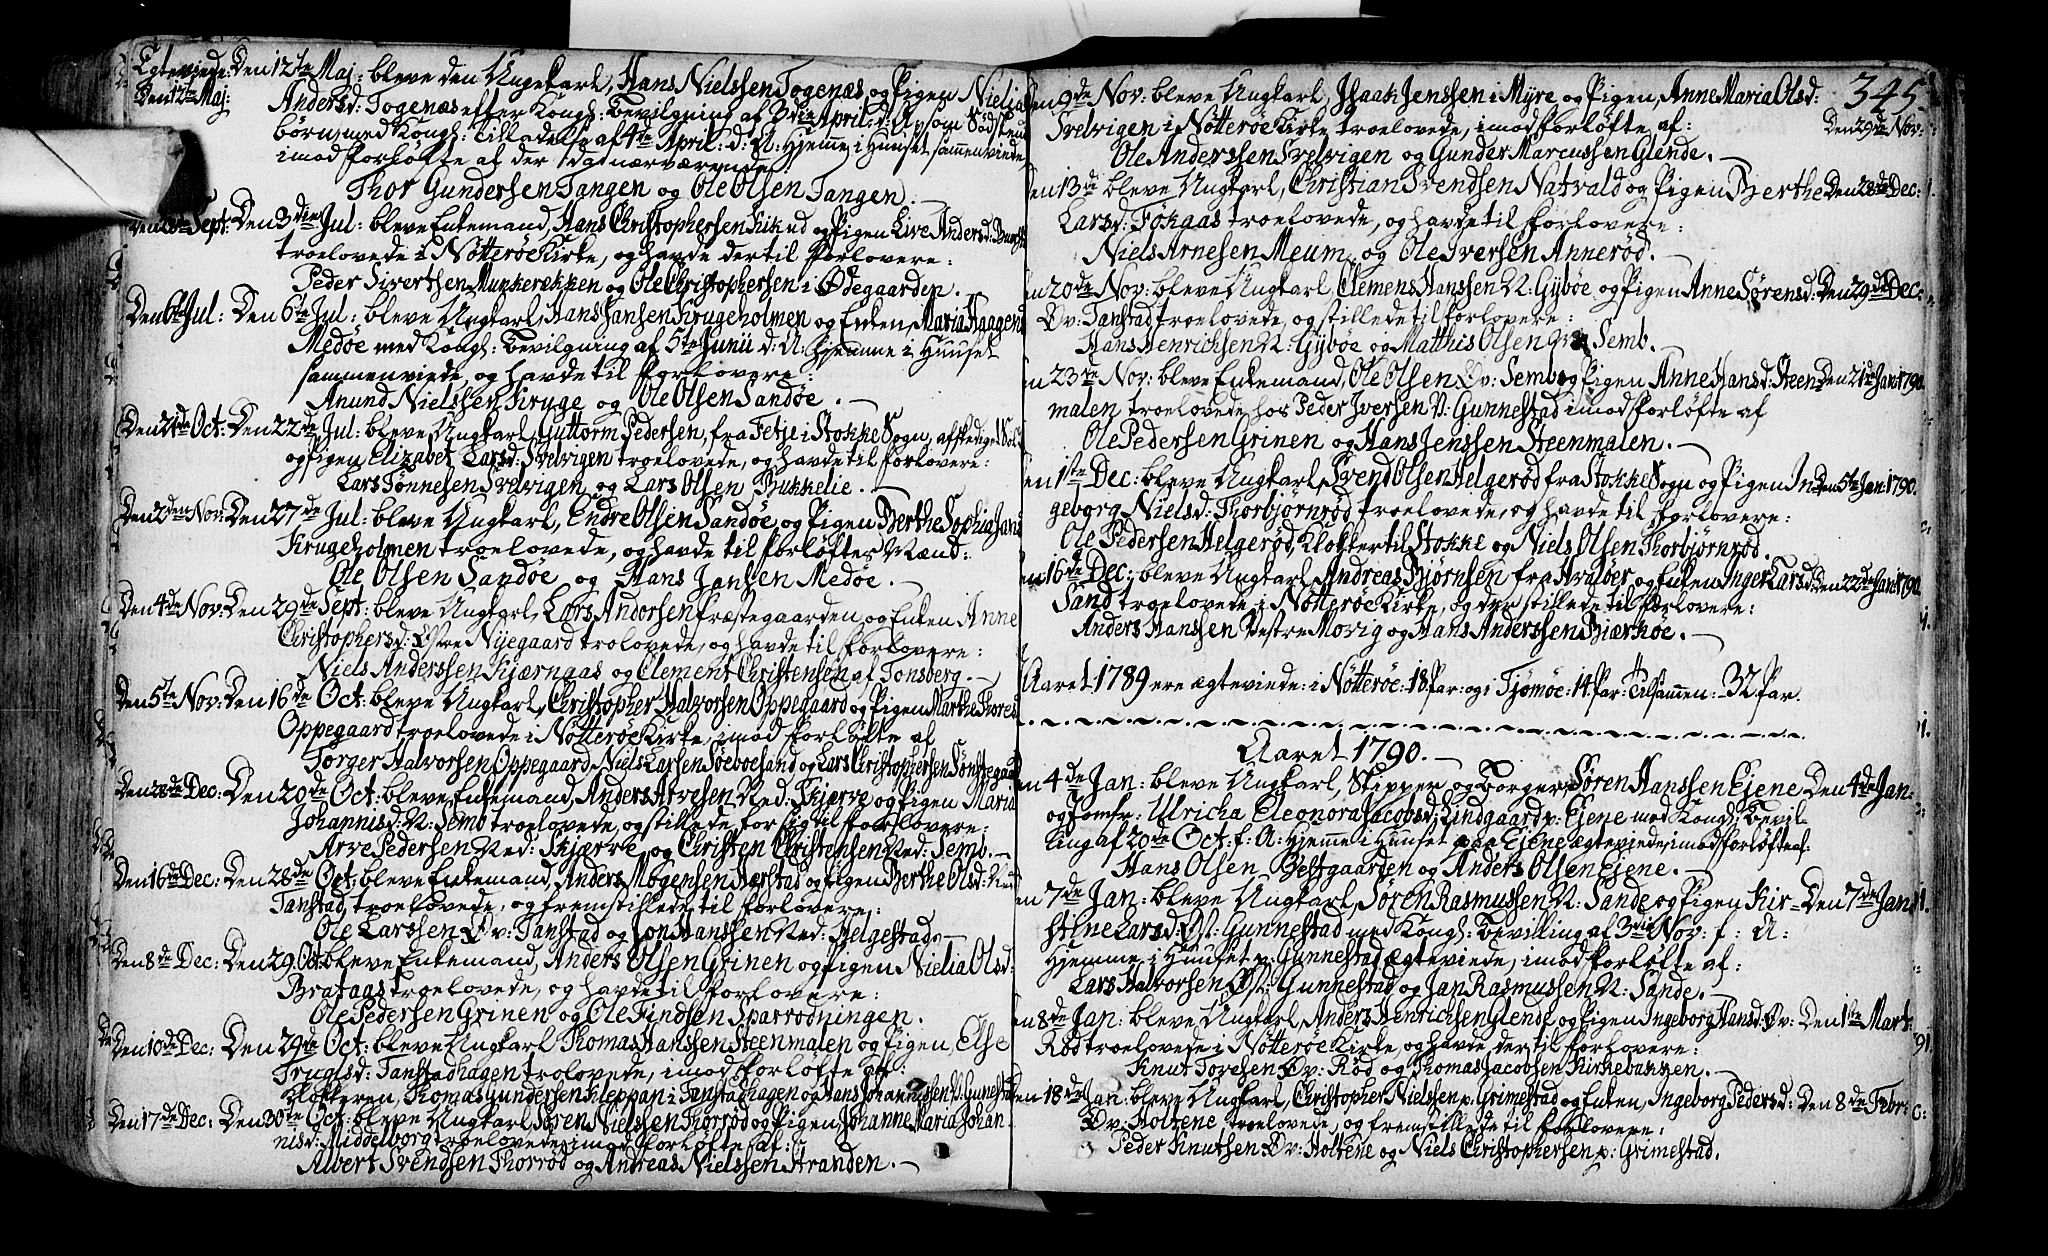 Egteviede: Den 12te Maj: bleve den Ungekarl, Hans Nielssen Togenæs og Pigen Nielia
Den 12te Maj: Andersd: Togenæs efter Kongl: Bevilgning af 3die April: d: A: som Södskende
börn, med Kongl: Tilladelse af 4te April: d: A: Hjemme i Huuset sammenviede
imod forløfte af der sidst nærværende:
Thor Gundersen Tangen og Ole Olsen Tangen. —
Sept: Den 3die Jul: bleve Enkemand, Hans Christophersen Kikud og Pigen Live Andersd:
troelovede i Nötteröe Kirke, og havde dertil forlovere:
Peder Sivertsen Munkerekken og Ole Christophersen i Ødegaarden. —
Den 6te Jul: Den 6te Jul: bleve Ungkarl, Hans Jansen Krugeholmen og Enken, Maria Haagensd
Medöe med Kongl: Bevilgning af 5te Junii d: A: hjemme i Huuset
sammenviede, og havde til forlovere:
Anund Nielssen Kruge og Ole Olsen Sandöe. —
Den 21de Oct: Den 22de Jul: bleve Ungkarl, Guttorm Pedersen, fra Fetje i Stokke Sogn, afskediget Sold
og Pigen Elizabet Larsd: Svelvigen troelovede, og havde til forlovere:
Lars Tönnesen Svelvigen og Lars Olsen Bukkelie. —
Den 2den Nov: Den 27de Jul: bleve Ungkarl, Endre Olsen Sandöe, og Pigen Berthe Sophia Jans
Krugeholmen troelovede, og havde til forløfter Mænd:
Ole Olsen Sandöe og Hans Jansen Medöe. —
Den 4de Nov: Den 29de Sept: bleve Ungkarl, Lars Andorsen Præstegaarden, og Enken Anne
Christophersd: Østre Nÿegaard trolovede, og havde til forlovere:
Niels Anderssen Kjærnaas og Clement Christensen af Tonsberg. —
Den 5te Nov: Den 16de Oct: bleve Ungkarl, Christopher Halvorsen Oppegaard og Pigen Marthe Thores
Oppegaard troelovede i Nötteröe Kirke, imod forløfte af
Torger Halvorsen Oppegaard, Niels Larsen Söeboesand og Lars Christophersen
Den 28de Dec: Den 20de Oct: bleve Enkemand, Anders Arvesen Ned: Skjerve og Pigen Maria
Johannisd: N: Semb troelovede, og stillede for sig til forlovere:
Arve Pedersen Ned: Skjærve og Christen Christensen Ned: Semb. —
Den 16de Dec: Den 28de Oct: bleve Enkemand, Anders Mogensen Harstad og Pigen Berthe Olsd:
Tanstad troelovede, og fremstillede til forlovere:
Ole Larssen Øv: Tanstad og Jon Hanssen Ned: Helgestad. —
Den 8de Dec: Den 29. Oct: bleve Enkemand, Anders Olsen Grinen og Pigen Nielia Olsd:
Brataas troelovede, og havde til forlovere:
Ole Pedersen Grinen og Ole Findsen Sparrodningen.
Den 10de Dec: Den 29de Oct: bleve Ungkarl Thomas Hanssen Steenmalen og Pigen, Else
Truglsd: Tanstadhagen trolovede, imod forløfte af:
Klokkeren, Thomas Gundersen Kleppan i Tanstadhagen og Hans Johannissen V: Gunnestad
Den 17de Dec: Den 30te Oct: bleve Ungkarl Sören Nielssen Thorröd og Pigen, Johanne Maria Johan
nisd: Middelborg troelovede, imod forløfte af:
Albert Svendsen Thorröd og Andreas Nielssen Stranden. —
345.
9de Nov: bleve Ungkarl, Isaak Jenssen i Myre og Pigen, Anne Maria Olsd: Den 29de Nov:
Svelvigen i Nötteröe Kirke troelovede, imod forløfte af:
Ole Anderssen Svelvigen og Gunder Marcussen Glende. —
13de bleve Ungkarl, Christian Svendsen Natvald og Pigen Berthe Den 28de Dec:
Larsd: Fökaas troelovede, og havde til forlovere:
Niels Arnesen Meum og Ole Iversen Anneröd. —
20de Nov: bleve Ungkarl, Clemens Hanssen N: Gyböe og Pigen Anne Sörensd: Den 29de Dec:
Øv: Tanstad troelovede, og stillede til forlovere:
Hans Henrichsen N: Gyböe og Matthis Olsen Semb. —
23de Nov: bleve Enkemand, Ole Olsen Øv: Semb og Pigen Anne Hansd: Steen Den 21de Jan: 1790.
malen troelovede hos Peder Iversen V: Gunnestad imod forløfte af
Ole Pedersen Grinen og Hans Jenssen Steenmalen. —
1ste Dec: bleve Ungkarl, Svend Olsen Helgeröd fra Stokke Sogn og Pigen In Den 5te Jan: 1790.
geborg Nielsd: Thorbjørnröd troelovede, og havde til forlovere:
Ole Pedersen Helgeröd, Klokker til Stokke og Niels Olsen Thorbjørnröd.
16de Dec: bleve Ungkarl, Andreas Bjørnsen fra Hvalöer, og Enken Inger Larsd Den 22de Jan: 1790.
Sand troelovede i Nötteröe Kirke, og der stillede til forlovere:
Anders Hanssen Vestre Movig og Hans Anderssen Bjærköe. —
Aaret 1789 ere ægteviede: i Nötteröe: 18 Par: og i Tjömöe: 14 Par Tilsammen: 32 Par.
Aaret 1790. —
4de Jan: bleve Ungkarl, Skipper og Borger, Sören Hanssen Ejene Den 4de Jan:
og Jomfr: Ulricha Eleonora Jacobsd: Lindgaard v: Ejene med Kongl: Bevil-
ling af 20de Oct: f: A: Hjemme i Huuset paa Ejene ægteviede, imod forløfte af:
Hans Olsen Bestgaarden og Anders Olsen Ejene. —
7de Jan: bleve Ungkarl, Sören Rasmussen N: Sande og Pigen Kir- Den 7de Jan:
stine Larsd: Øst: Gunnestad med Kongl: Bevilling af 3die Nov: f: A:
Hjemme i Huuset v: Gunnestad ægteviede, imod forløfte af:
Lars Halvorsen Øst: Gunnestad og Jan Rasmussen N: Sande. —
8de Jan: bleve Ungkarl, Anders Henrichsen Glende og Pigen Ingeborg Hansd: Øv: Den 1ste Mart:
Röd troelovede i Nötteröe Kirke, og havde der til forlovere:
Knut Toresen Øv: Röd og Thomas Jacobsen Kirkebakken. —
18de Jan: bleve Ungkarl, Christopher Nielssen v: Grimestad og Enken, Ingeborg Pedersd: Den 8de Febr:
Øv: Holtene troelovede, og fremstillede til forlovere:
Peder Knutsen Øv: Holtene og Niels Christophersen v: Grimestad.